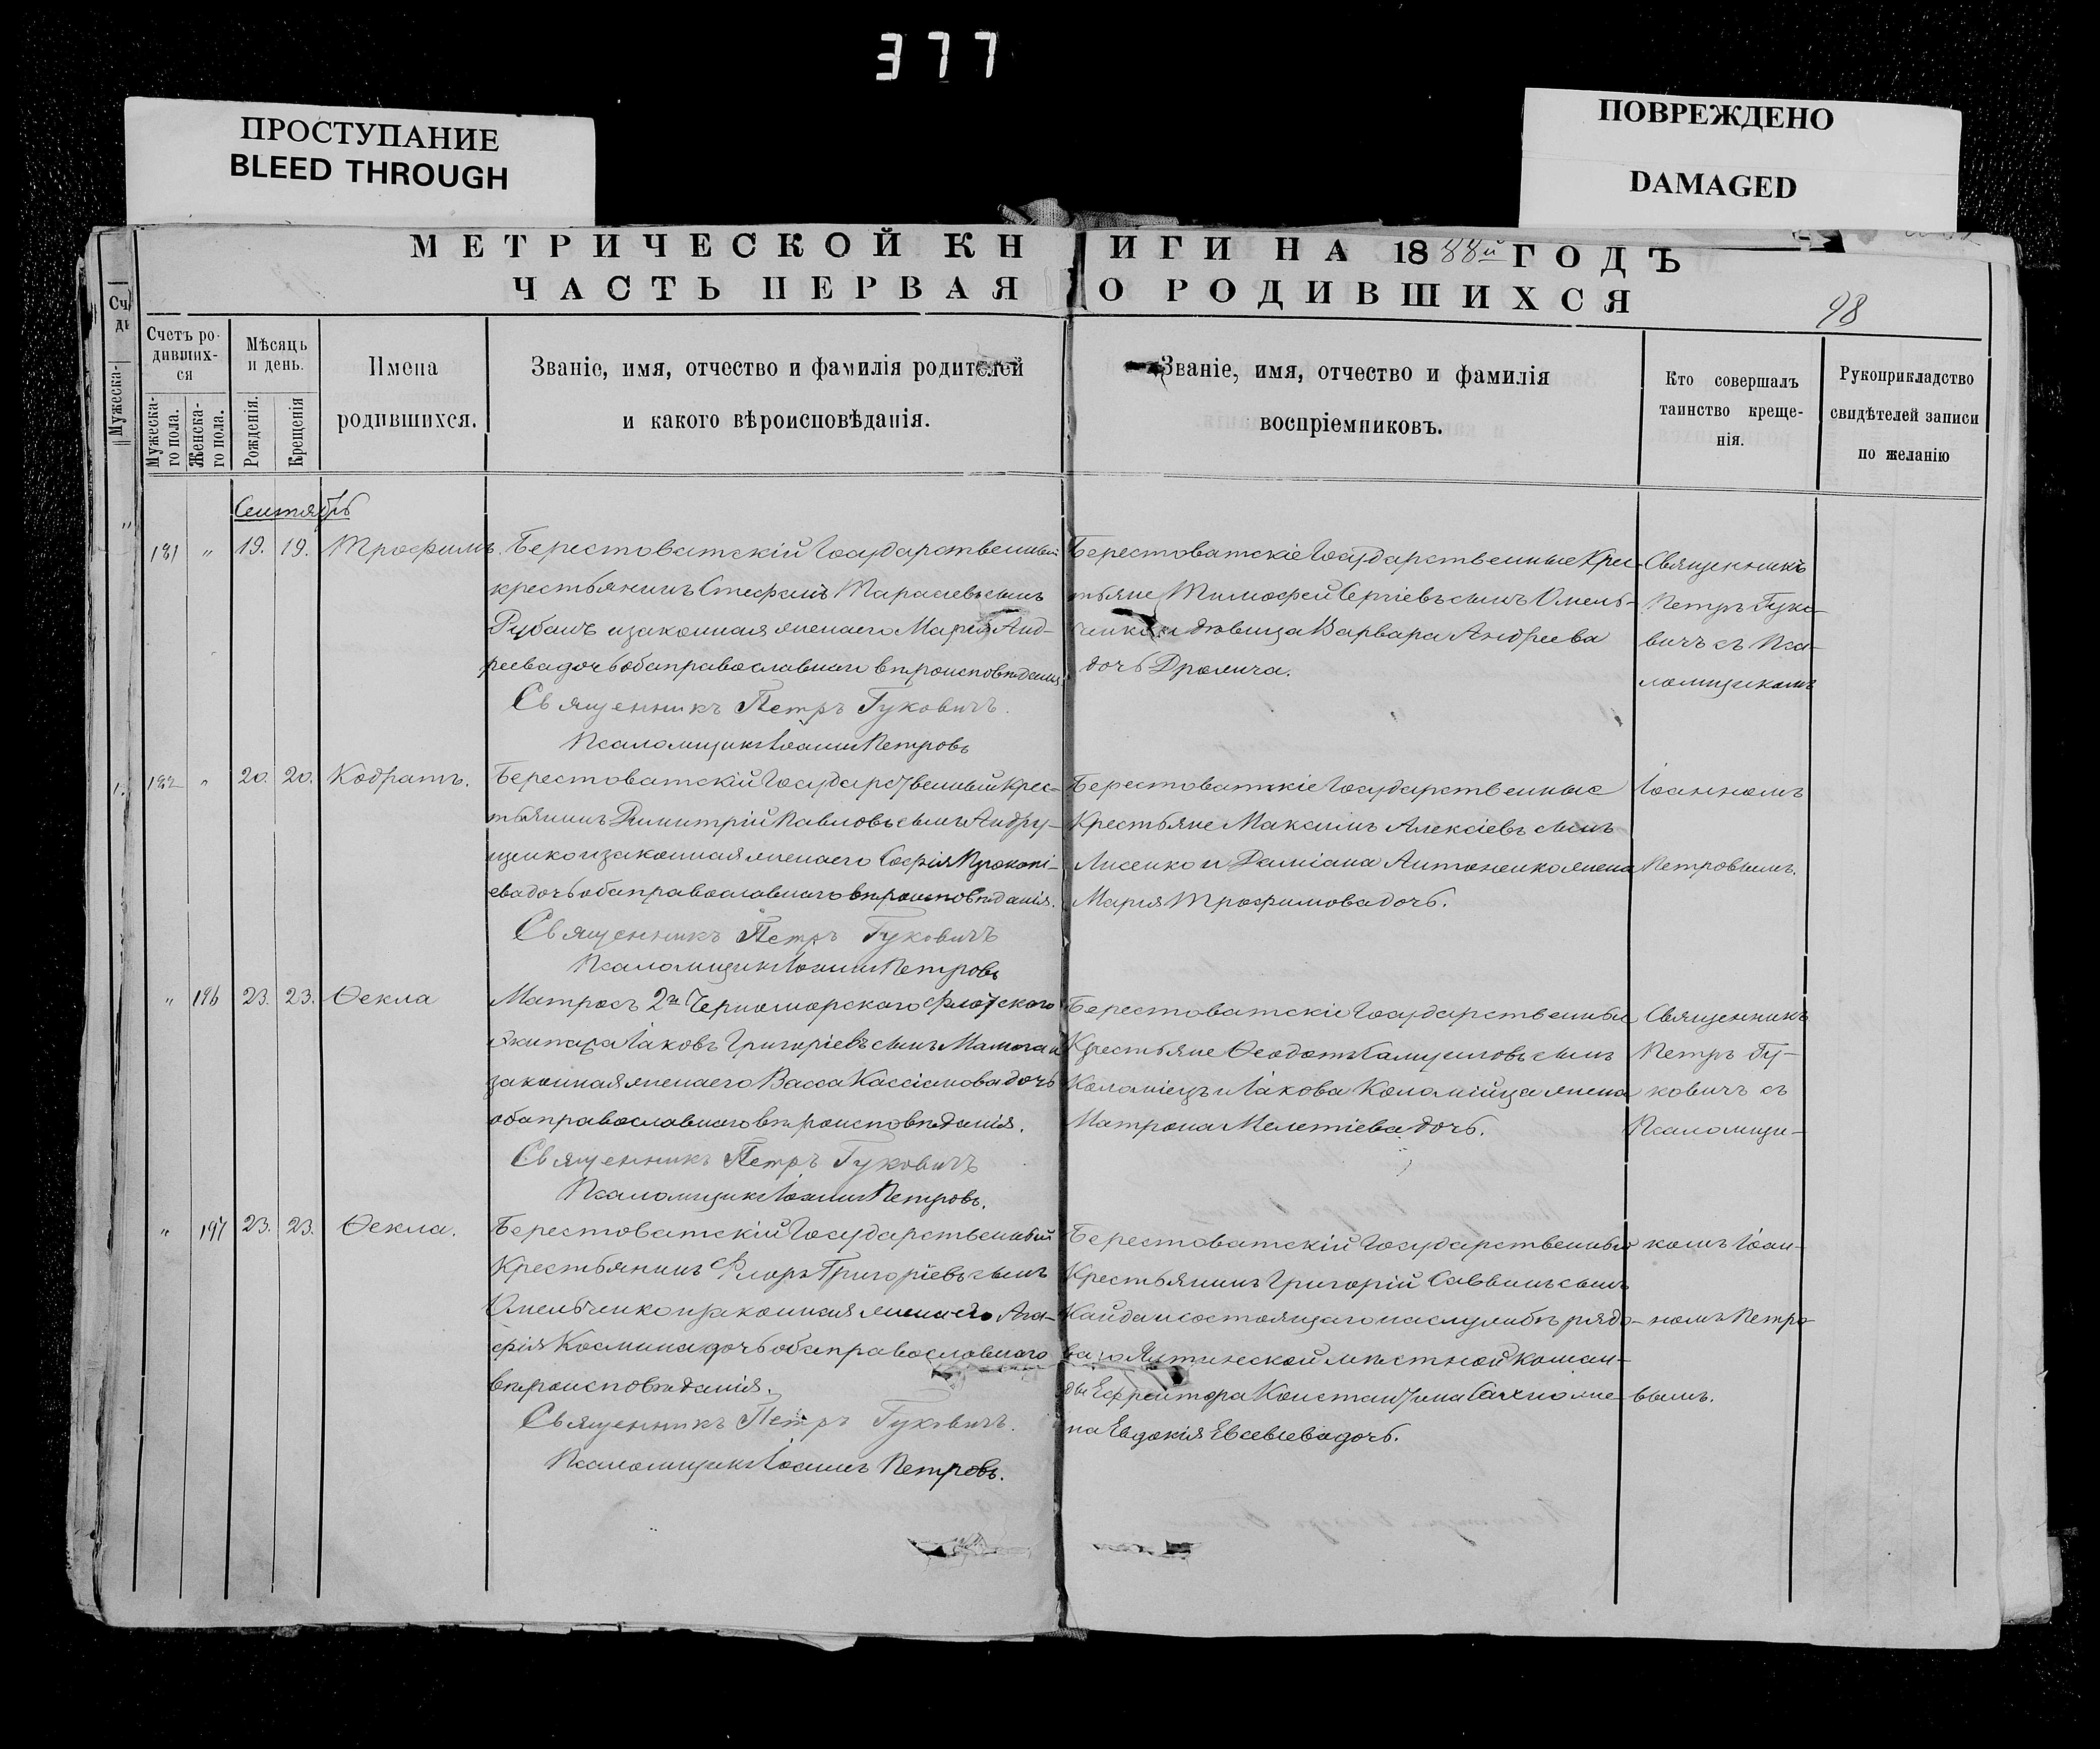 377
ПРОСТУПАНИЕ
BLEED THROUGH
ПОВРЕЖДЕНО
DAMAGED
МЕТРИЧЕСКОЙ КНИГИ НА 1888й ГОДЪ
ЧАСТЬ ПЕРВАЯ О РОДИВШИХСЯ
98
Счетъ ро-
дивших-
ся
Мужеска-
го пола.
Женска-
го пола.
Мѣсяцъ
и день.
Рожденія.
Крещенія
Имена
родившихся.
Званіе, имя, отчество и фамилія родителей
и какого вѣроисповѣданія.
Званіе, имя, отчество и фамилія
воспріемниковъ.
Кто совершалъ
таинство креще-
нія.
Рукоприкладство
свидѣтелей записи
по желанію
Мужеска-
Сентябрь
181 " 19. 19. Трофимъ.
Берестоватскій Государственный
крестьянинъ Стефанъ Тарасіевъ сынъ
Рубанъ и законная жена его Марія Анд-
реева дочь оба православнаго вѣроисповѣданія.
Священникъ Петръ Гуковичъ.
Псаломщикъ Іоаннъ Петровъ
Берестоватскіе Государственные Крес-
тьяне Тимофей Сергіевъ сынъ Омель-
ченко и дѣвица Варвара Андреева
дочь
Священникъ
Петръ Гуко-
вичъ съ Пса-
ломщикомъ
182 " 20. 20. Кодратъ.
Берестоватскій Государственный Крес-
тьянинъ Димитрій Павловъ сынъ Андру-
щенко и законная жена его Софія Прокопі-
ева дочь оба православнаго вѣроисповѣданія.
Священникъ Петръ Гуковичъ
Псаломщикъ Іоаннъ Петровъ
Берестоватскіе Государственные
Крестьяне Максимъ Алексіевъ сынъ
Лисенко и Даміана Антоненко жена
Марія Трофимова дочь.
Іоанномъ
Петровымъ.
" 196 23. 23. Ѳекла
Матросъ 2го Черноморскаго флотскаго
Экипажа Іаковъ Григоріевъ сынъ и
законная жена его Васса Кассіанова дочь
оба православнаго вѣроисповѣданія.
Священникъ Петръ Гуковичъ
Псаломщикъ Іоаннъ Петровъ.
Берестоватскіе Государственные
Крестьяне Ѳеодотъ Самуиловъ сынъ
Коломіецъ и Іакова Коломійца жена
Матрона Мелетіева дочь.
Священникъ
Петръ Гу-
ковичъ съ
Псаломщи-
" 197 23. 23. Ѳекла.
Берестоватскій Государственный
Крестьянинъ Флоръ Григоріевъ сынъ
Омельченко и законная жена его Ага-
фія Космина дочь оба православнаго
вѣроисповѣданія.
Священникъ Петръ Гуковичъ.
Псаломщикъ Іоаннъ Петровъ.
Берестоватскій Государственный
Крестьянинъ Григорій Саввинъ сынъ
Кайда и состоящаго на службѣ рядо-
ваго мѣстной коман-
ды Ефрейтора Константина Сахно же-
на Евдокія Евсевіева дочь.
комъ Іоан-
номъ Петро-
вымъ.